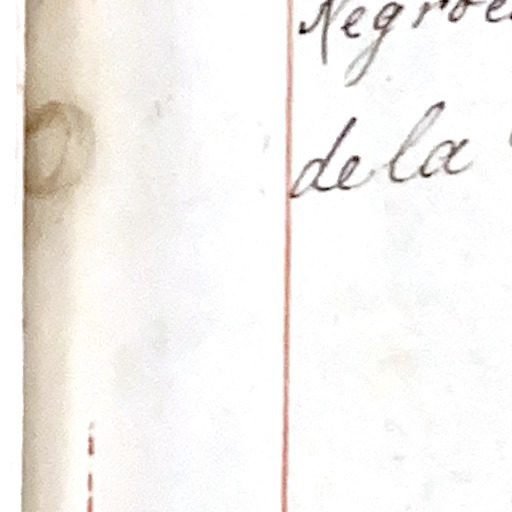 Negroe
de la